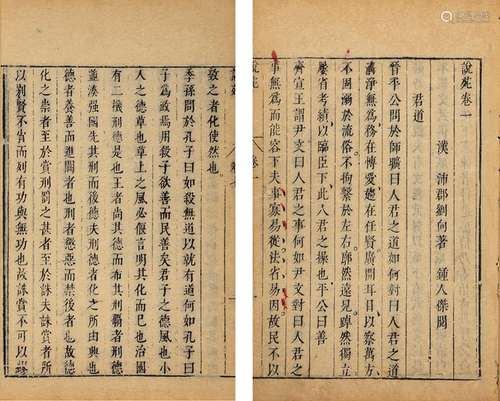 說苑卷一
漢 沛郡劉向著 鍾人傑閱
君道
晉平公問於師曠曰人君之道如何對曰人君之道
清淨無為務在博愛趨在任賢廣開耳目以察萬方
不固溺於流俗不拘繫於左右廓然遠見踔然獨立
屢省考績以臨臣下此人君之操也平公曰善
齊宣王謂尹文曰人君之事何如尹文對曰人君之
事無為而能容下夫事寡易從法省易因故民不以
說苑 卷一
致之者化使然也
季孫問於孔子曰如殺無道以就有道何如孔子曰
子為政焉用殺子欲善而民善矣君子之德風也小
人之德草也草上之風必偃言明其化而已也治國
有二機刑德是也王者尚其德而布其刑霸者刑德
並湊強國先其刑而後德夫刑德者化之所由興也
德者養善而進闕者也刑者懲惡而禁後者也故德
化之崇者至於賞刑罰之甚者至於誅夫誅賞者所
以別賢不肖而列有功與無功也故誅賞不可以繆